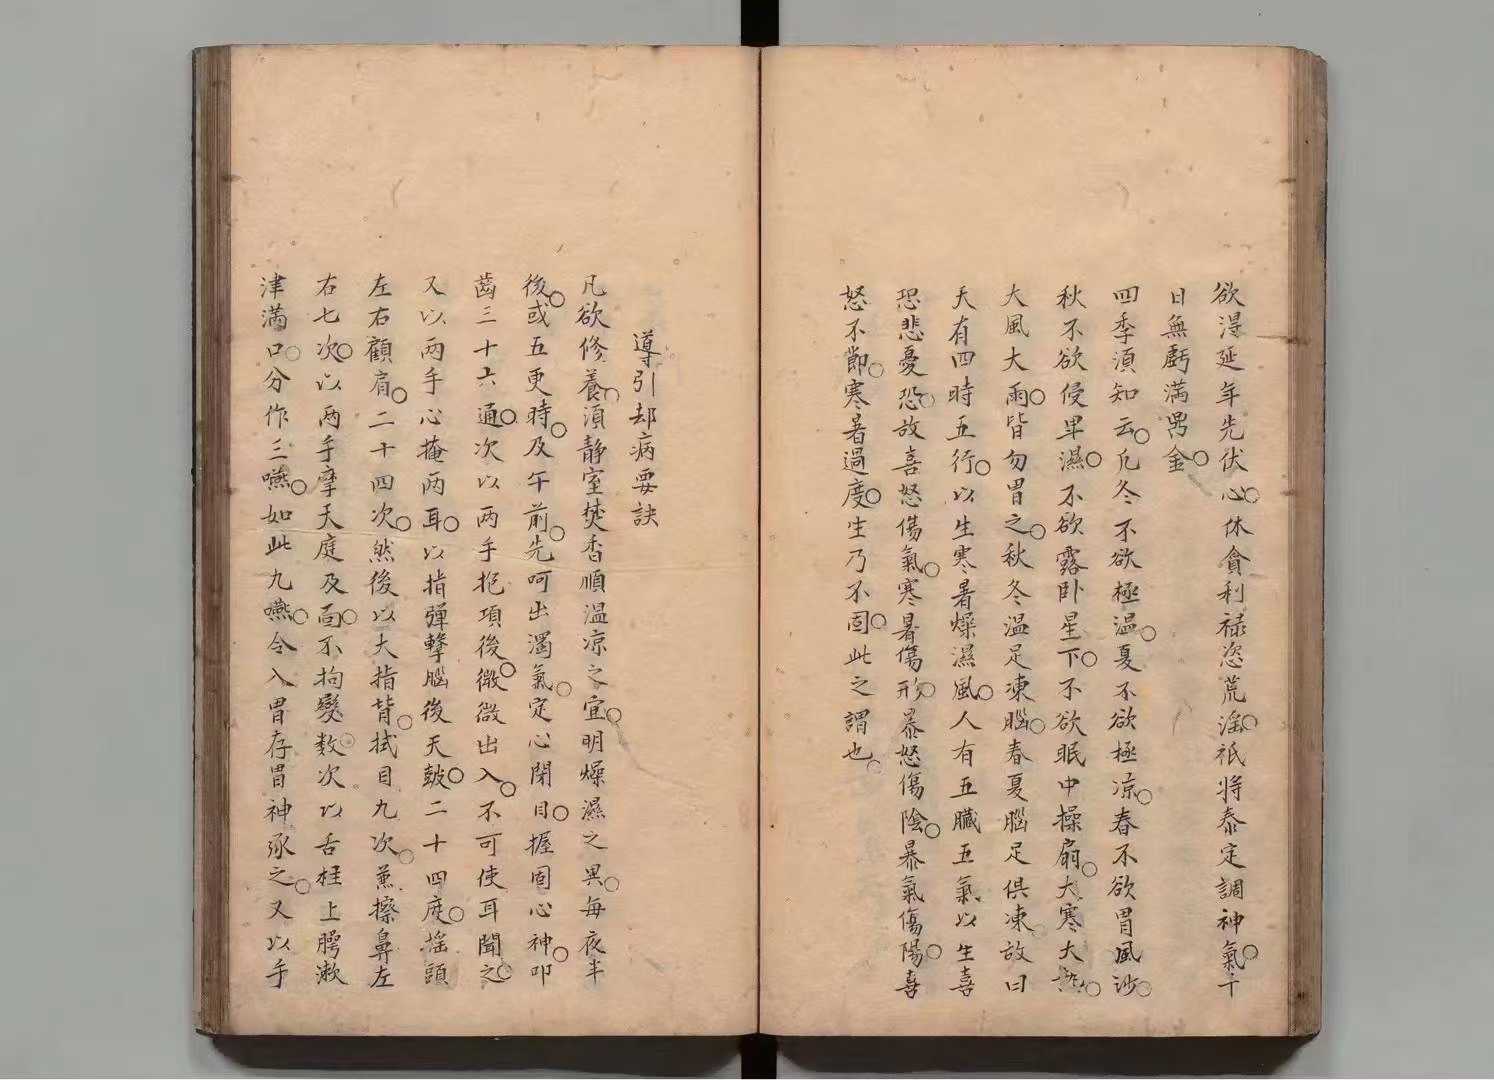 欲得延年先伏心○休貪利祿恣荒滛○祇将泰定調神氣○千
日無虧滿㽞金○
四季須知云○凢冬不欲極温○夏不欲極凉○春不欲冒風沙○
秋不欲侵旱濕○不欲露卧星下○不欲眠中操扇○大寒大熱○
大風大雨○皆勿冒之○秋冬温足凍腦○春夏腦足俱凍○故曰
天有四時五行○以生寒暑燥濕風○人有五臟五氣以生喜
恐悲憂恐○故喜怒傷氣○寒暑傷形○暴怒傷陰○暴氣傷陽○喜
怒不節○寒暑過度○生乃不固○此之謂也○
導引却病要訣
凡欲修養○須静室焚香順温凉之宜○明燥濕之異○每夜半
後○或五更時○及午前○先呵出濁氣○定心閉目○握固心神○叩
齒三十六通○次以兩手抱項後○微微出入○不可使耳聞之○
又以两手心掩两耳○以指彈擊腦後天皷○二十四度○揺頭
左右顧肩○二十四次○然後以大指背○拭目九次○蕙擦鼻左
右七次○以两手摩天庭及面○不拘㡬数○次以舌柱上腭漱
津滿口○分作三嚥○如此九嚥○令入胃存胃神承之○又以手